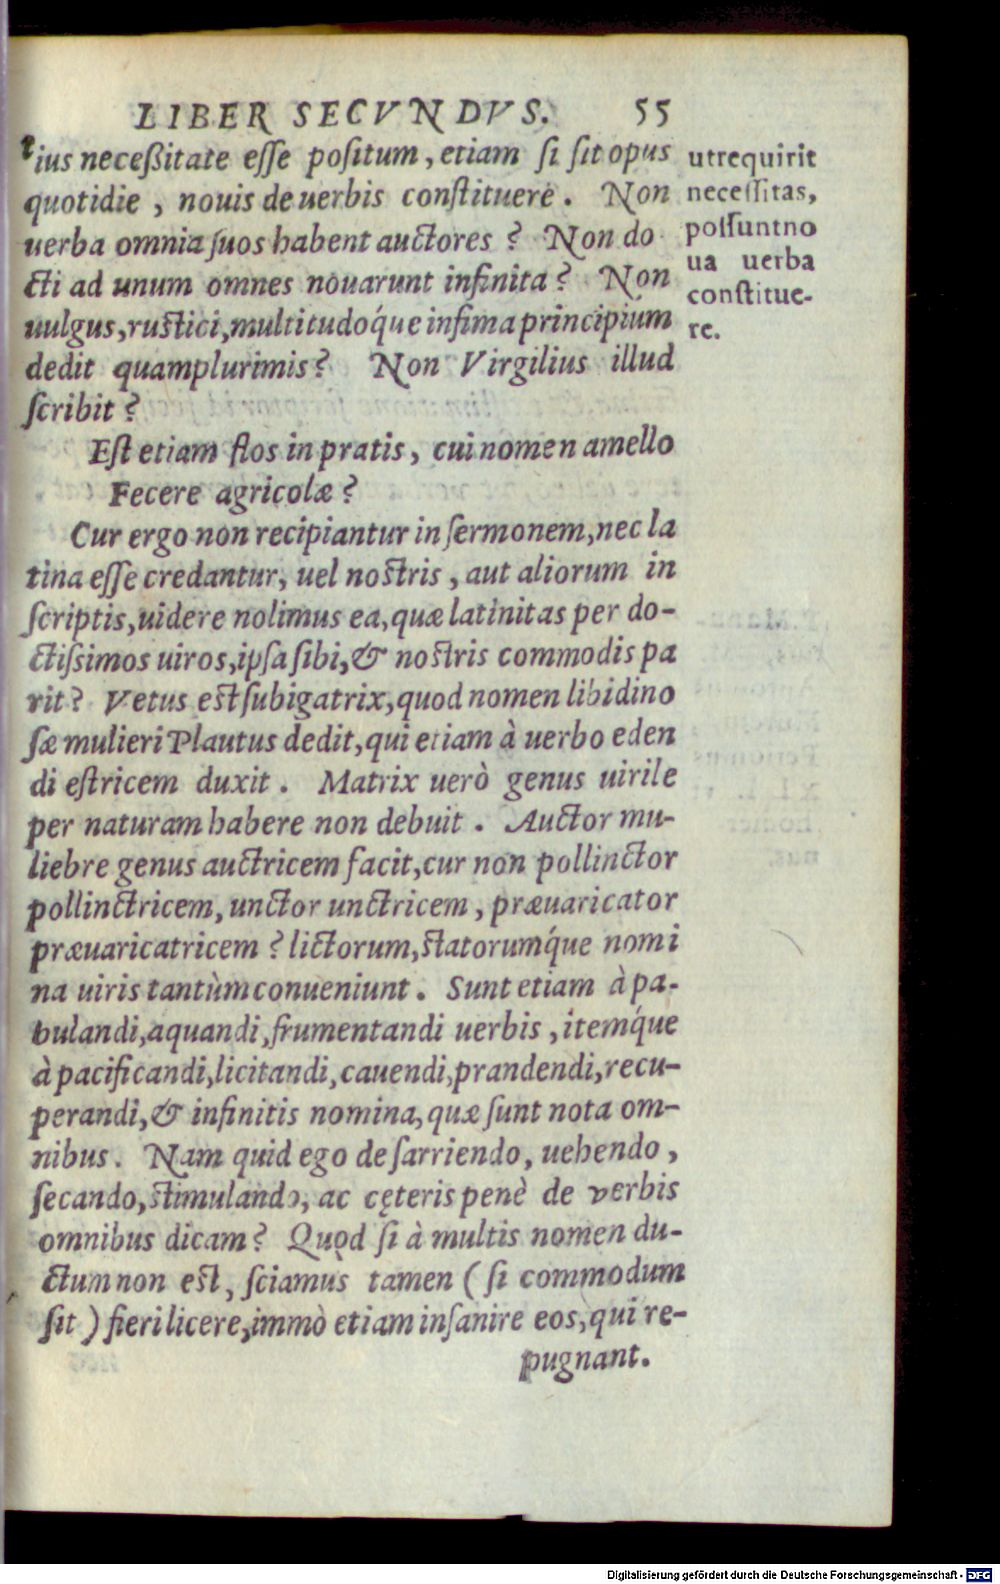 LIBER SECVNDVS. 55
tius neceßitate eſſe poſitum, etiam ſi ſit opus
quotidie, nouis de uerbis conſtituere. Non
uerba omnia ſuos habent auctores? Non do
cti ad unum omnes nouarunt infinita? Non
uulgus, ruſtici, multitudoq́ue infima principium
dedit quamplurimis? Non Virgilius illud
ſcribit?
Eſt etiam flos in pratis, cui nomen amello
Fecere agricolæ?
Cur ergo non recipiantur in ſermonem, nec la
tina eſſe credantur, uel noſtris, aut aliorum in
ſcriptis, uidere nolimus ea, quæ latinitas per do-
ctiſsimos uiros, ipſa ſibi, & noſtris commodis pa
rit? Vetus eſt ſubigatrix, quod nomen libidino
ſæ mulieri Plautus dedit, qui etiam à uerbo eden
di eſtricem duxit. Matrix uerò genus uirile
per naturam habere non debuit. Auctor mu-
liebre genus auctricem facit, cur non pollinctor
pollinctricem, unctor unctricem, præuaricator
præuaricatricem? lictorum, ſtatorumq́ue nomi
na uiris tantùm conueniunt. Sunt etiam à pa-
bulandi, aquandi, frumentandi uerbis, itemq́ue
à pacificandi, licitandi, cauendi, prandendi, recu-
perandi, & infinitis nomina, quæ ſunt nota om-
nibus. Nam quid ego de ſarriendo, uehendo,
ſecando, ſtimulando, ac cęteris penè de verbis
omnibus dicam? Quod ſi à multis nomen du-
ctum non eſt, ſciamus tamen (ſi commodum
ſit) fieri licere, immò etiam inſanire eos, qui re-
pugnant.
ut requirit
neceſſitas,
poſſunt no
ua uerba
conſtitue-
re.
Digitalisierung gefördert durch die Deutsche Forschungsgemeinschaft - DFG